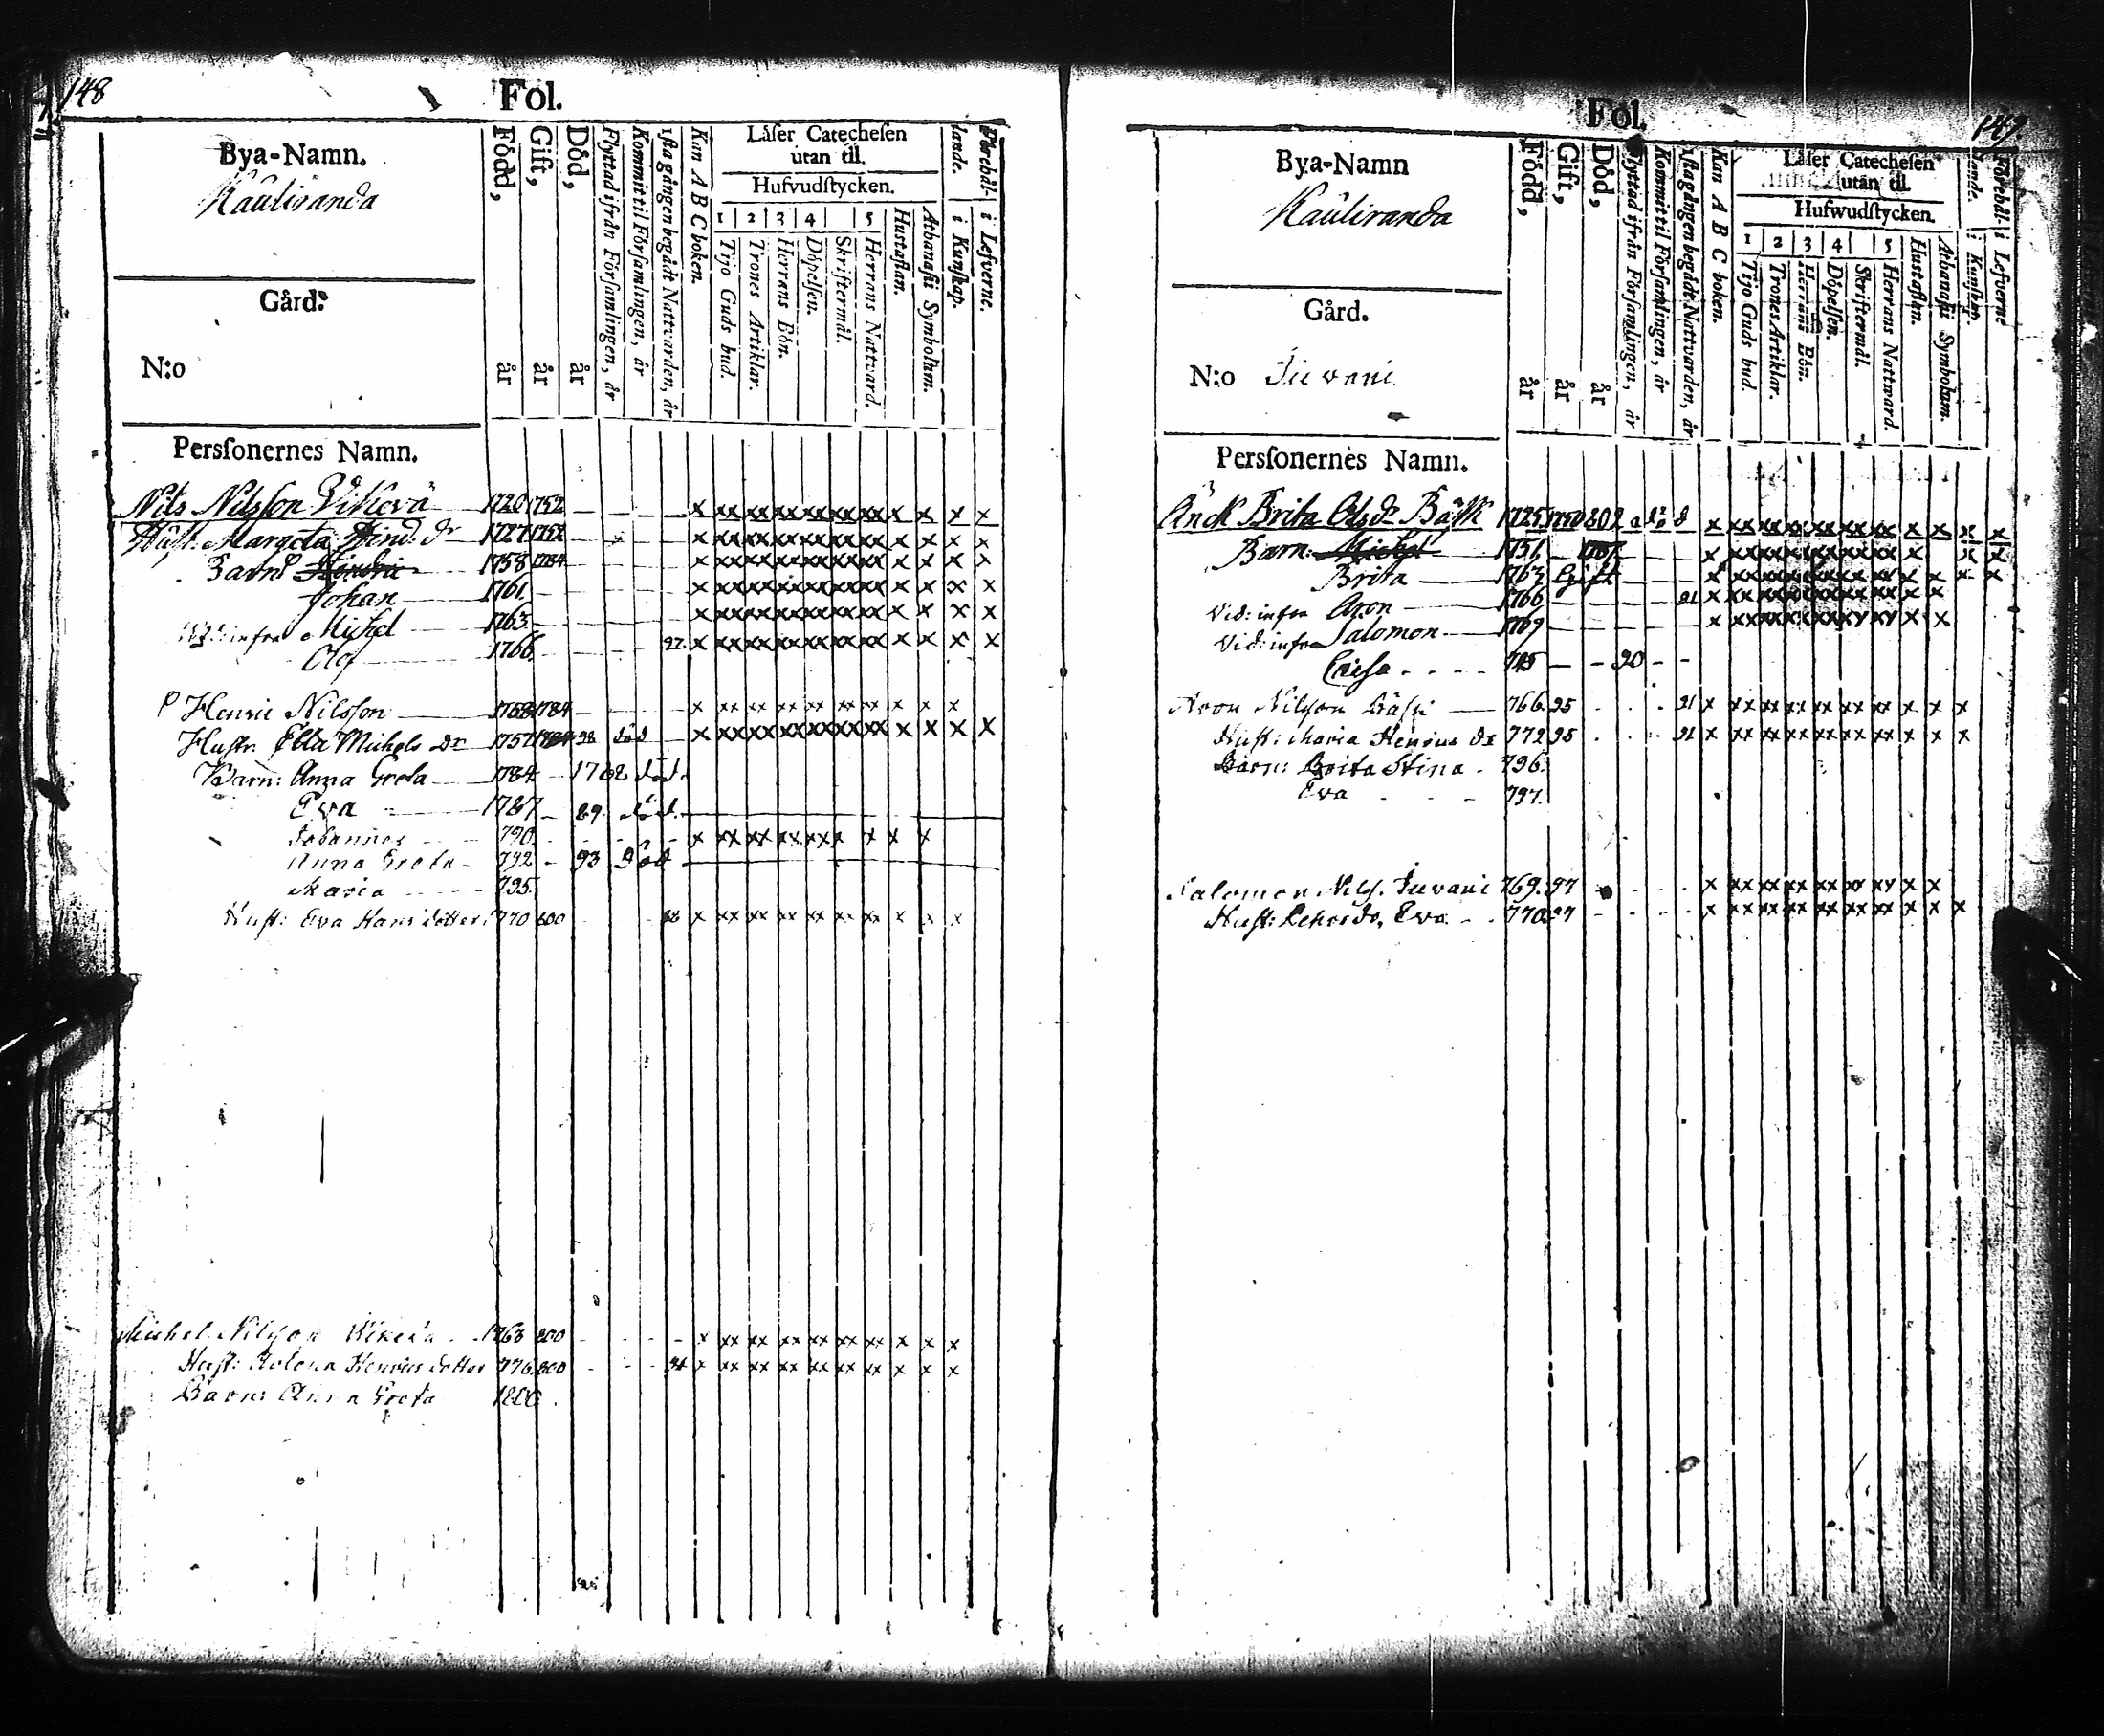 148
Fol.
Bya-Namn.
Kauliranda
Gård.
N:o
Född, år
Gift, år
Död, år
Flyttad ifrån Församlingen, år
Kommit til Församlingen, år
1sta gången begådt Nattvarden, år
Kan A B C boken.
Låser Catechesen
utan til.
Hufvudstycken.
1 2 3 4 5
Tijo Guds bud.
Trones Artiklar.
Herrans Bön.
Döpelsen.
Skriftermål.
Herrans Nattvard.
Hustaflan.
Athanasii Symbolum.
Förehål-
lande.
i Kunskap.
i Lefverne.
Personernes Namn.
Nils Nilsson Vikevä 1720 1752 x xx xx xx xx xx xx x x x x
Hust. Margeta Hind. dr 1727 1752 x xx xx xx xx xx xx x x x x
Barn Henric 1758 1784 x xx xx xx xx xx xx x x x x
Johan 1761 x xx xx xx xx xx xx x x x x
Vid: infra Michel 1763 x xx xx xx xx xx xx x x x x
Olof 1766 92. x xx xx xx xx xx xx x x x x
Henric Nilsson 1758 1784 x xx xx xx xx xx xx x x x
Hustr. Ella Michels dr 1757 1784 98 död x xx xx xx xx xx xx x x x x
Barn: Anna Greta 1784 död.
Eva 1787 89. död.
Johannes 790. x xx xx xx xx x x x x
Anna Greta 792 93 död
Maria 795.
Hust: Eva Hans dotter 770 800 88 x xx xx xx xx xx xx x x x
Michel Nilsson Vikevä 1763 800 x xx xx xx xx xx xx x x x
Hust: Helena Henrics dotter 776 800 94 x xx xx xx xx xx xx x x x
Barn: Anna Greta 1800.
Fol.
149.
Bya-Namn
Kauliranda
Gård.
N:o Juvani
Född, år
Gift, år
Död, år
Flyttad ifrån Församlingen, år
Kommit til Församlingen, år
1sta gången begådt Nattvarden, år
Kan A B C boken.
Låser Catechesen
utan til.
Hufwudstycken.
1 2 3 4 5
Tijo Guds bud.
Trones Artiklar.
Herrans Bön.
Döpelsen.
Skriftermål.
Herrans Nattvard
Hustaflan.
Athanasii Symbolum.
Förehål-
lande.
i Kunskap.
i Lefverne
Personernes Namn.
Änck Brita Ols dr 1725 1750 802 död x xx xx xx xx xx xx x x x x
Barn: Michel 1751 x xx xx xx xx xx xx x x x
Brita 1763 Gift x xx xx xx xx xx xx x x x x
Vid: infra Aron 1766 91 x xx xx xx xx xx xx x x
Vid: infra Salomon 1769 x xx xx xx xx xx xx x x
90
Aron Nilsson 766. 95 91 x xx xx xx xx xx xx x x x
Hust: Maria Henrics dr 772 95 91 x xx xx xx xx xx xx x x x
Barn: Brita Stina 796.
Eva 797.
Salomon Nils. Juvani 769. 97 x xx xx xx xx xx xx x x
Hust: Eva 770. 97 x xx xx xx xx xx xx x x x